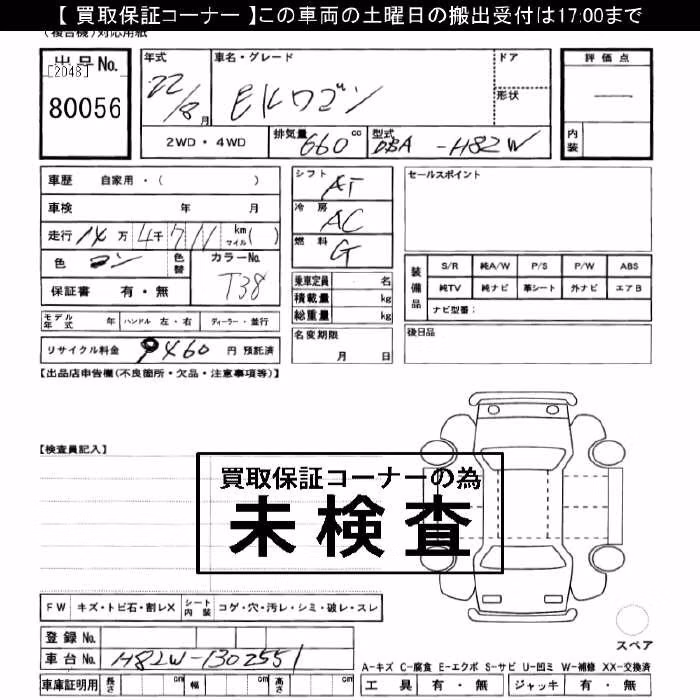 【 買取保証コーナー 】この車両の土曜日の搬出受付は17:00まで
(複合機)対応用紙
出品No.
[2048]
80056
年式
22/8月
車名・グレード
EKワゴン
ドア
形状
評価点
—
内装
2WD・4WD
排気量 660 cc
型式 DBA -H82W
車歴 自家用・( )
車検 年 月
走行 14万 4千 711 km マイル( )
色 コン
色替
カラーNo. T38
保証書 有・無
モデル年式 年 ハンドル 左・右 ディーラー・並行
リサイクル料金 9460 円 預託済
シフト AT
冷房 AC
燃料 G
乗車定員 名
積載量 kg
総重量 kg
名変期限
月 日
セールスポイント
装備品
S/R 純A/W P/S P/W ABS
純TV 純ナビ 革シート 外ナビ エアB
ナビ型番:
後日品
【出品店申告欄(不良箇所・欠品・注意事項等)】
【検査員記入】
買取保証コーナーの為
未検査
FW キズ・トビ石・割レX シート内装 コゲ・穴・汚レ・シミ・破レ・スレ
登録No.
車台No. H82W-1302551
車庫証明用 長さ cm 幅 cm 高さ cm
スペア
A-キズ C-腐食 E-エクボ S-サビ U-凹ミ W-補修 XX-交換済
工具 有・無 ジャッキ 有・無